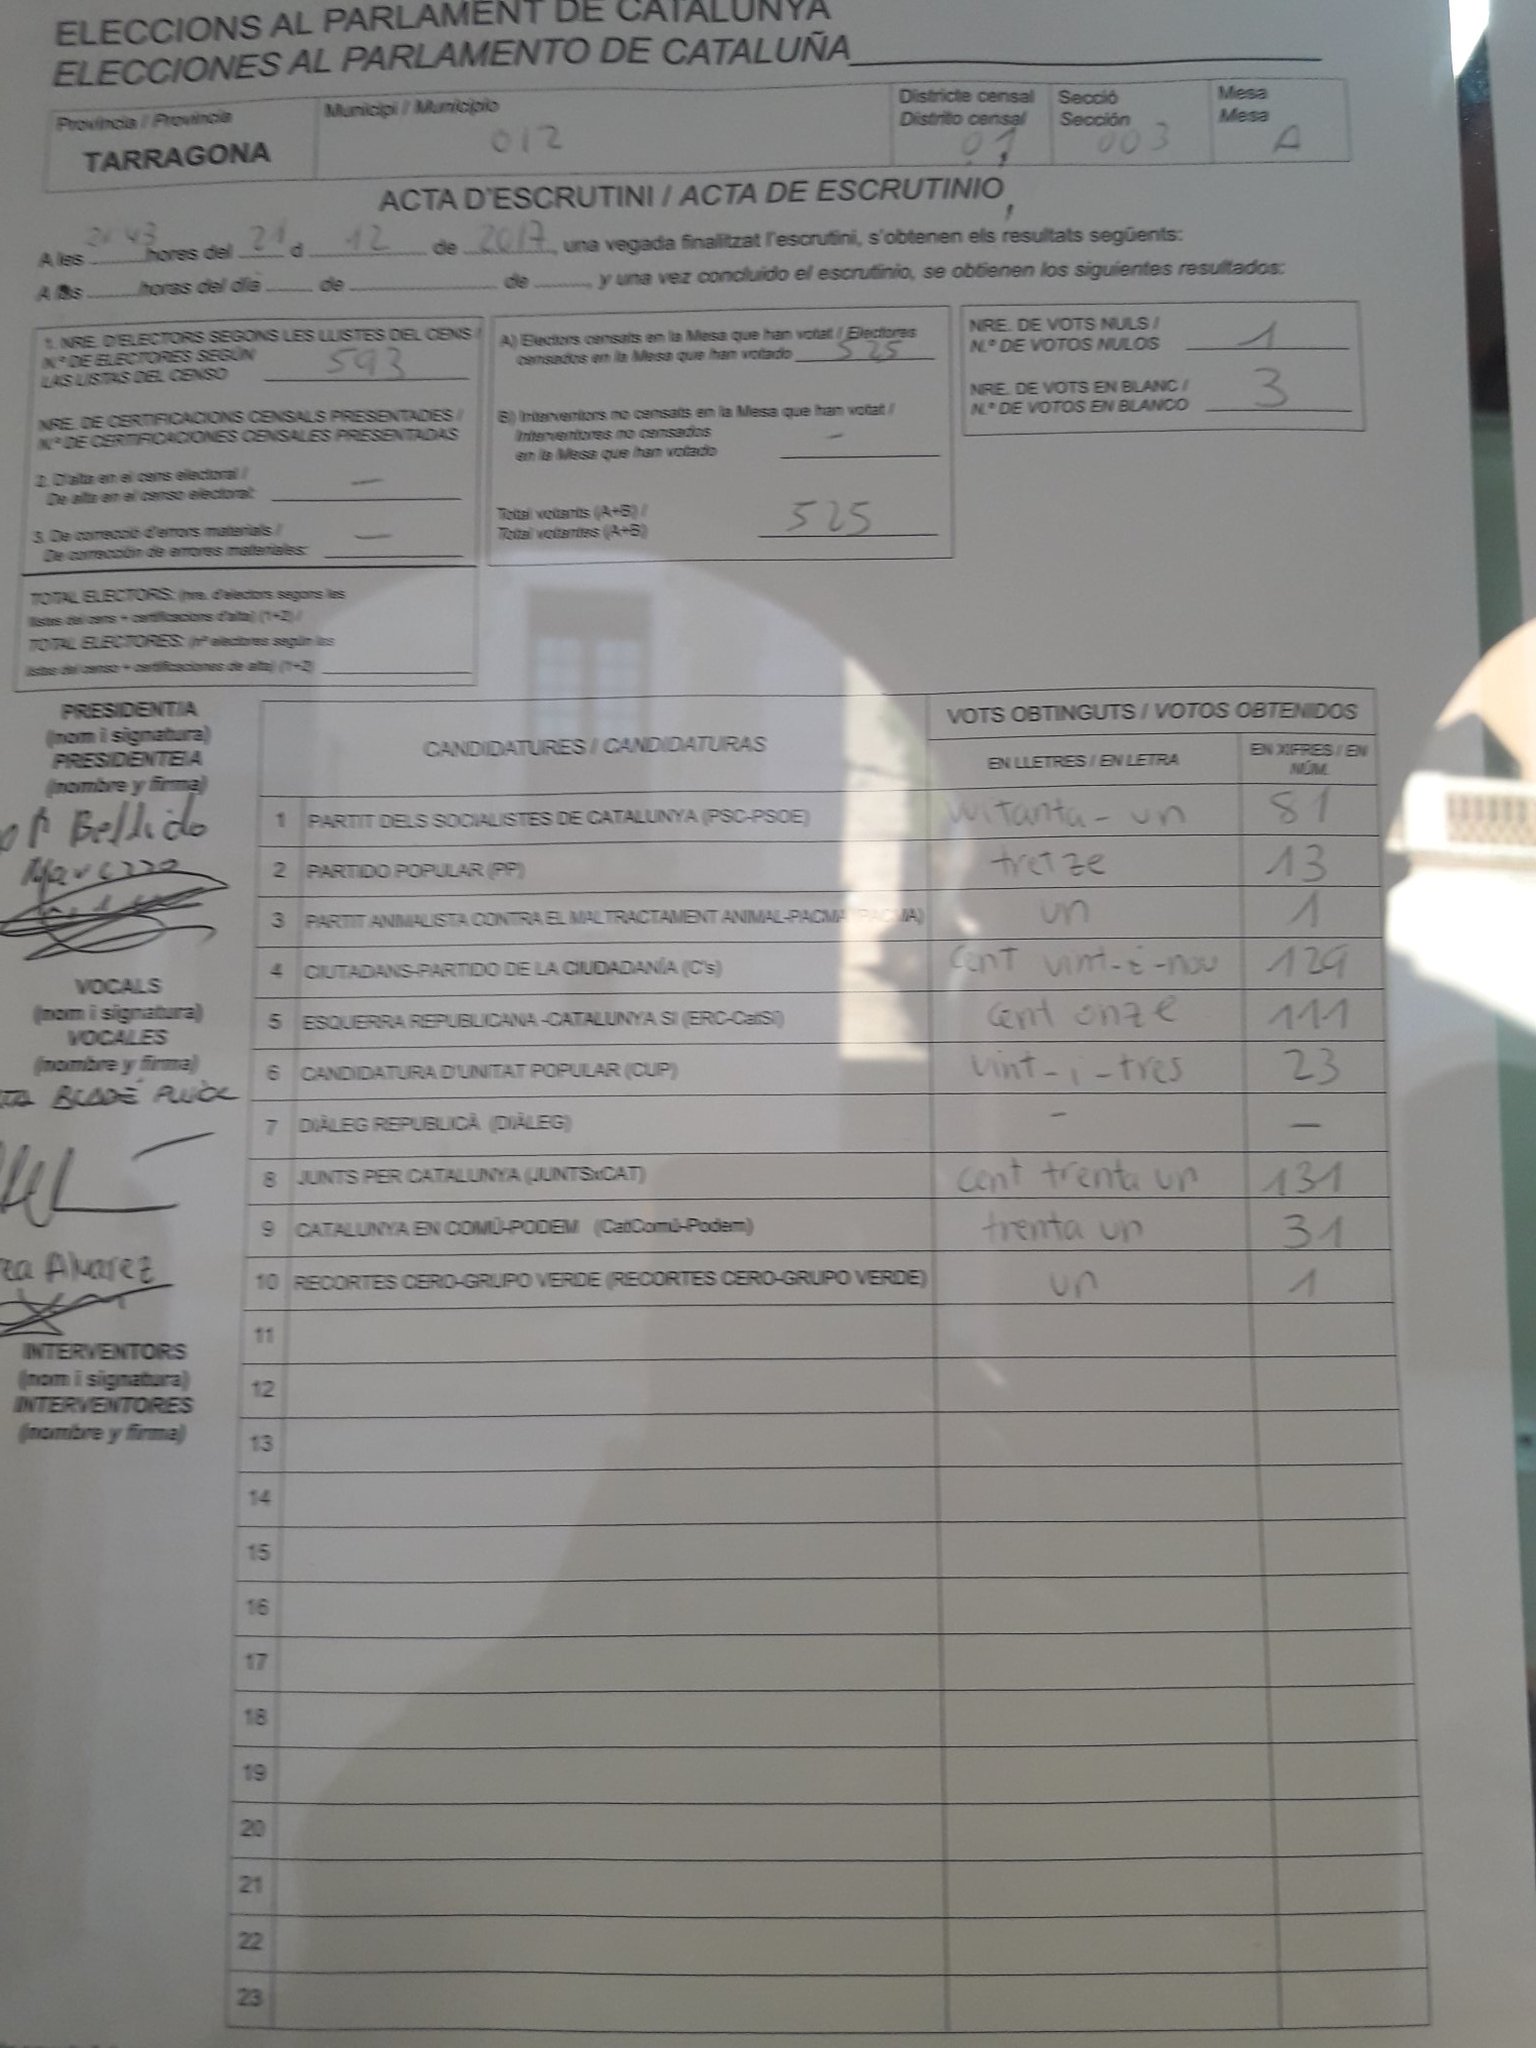 ELECCIONS AL PARLAMENT DE CATALUNYA
ELECCIONES AL PARLAMENTO DE CATALUÑA
Província / Provincia
TARRAGONA
Municipi / Municipio
012
Districte censal
Distrito censal
01
Secció
Sección
003
Mesa
Mesa
A
ACTA D'ESCRUTINI / ACTA DE ESCRUTINIO
A les 21 43 hores del 21 d 12 de 2017, una vegada finalitzat l'escrutini, s'obtenen els resultats següents:
A las horas del día de de , y una vez concluido el escrutinio, se obtienen los siguientes resultados:
1. NRE. D'ELECTORS SEGONS LES LLISTES DEL CENS /
N.º DE ELECTORES SEGÚN
LAS LISTAS DEL CENSO 593
NRE. DE CERTIFICACIONS CENSALS PRESENTADES /
N.º DE CERTIFICACIONES CENSALES PRESENTADAS
2. D'alta en el cens electoral /
De alta en el censo electoral: —
3. De correcció d'errors materials /
De corrección de errores materiales: —
TOTAL ELECTORS: (nre. d'electors segons les
llistes del cens + certificacions d'alta) (1+2) /
TOTAL ELECTORES: (nº electores según las
listas del censo + certificaciones de alta) (1+2)
A) Electors censats en la Mesa que han votat / Electores
censados en la Mesa que han votado 525
B) Interventors no censats en la Mesa que han votat /
Interventores no censados
en la Mesa que han votado —
Total votants (A+B) /
Total votantes (A+B) 525
NRE. DE VOTS NULS /
N.º DE VOTOS NULOS 1
NRE. DE VOTS EN BLANC /
N.º DE VOTOS EN BLANCO 3
PRESIDENT/A
(nom i signatura)
PRESIDENTE/A
(nombre y firma)
Bellido
VOCALS
(nom i signatura)
VOCALES
(nombre y firma)
Alvarez
INTERVENTORS
(nom i signatura)
INTERVENTORES
(nombre y firma)
CANDIDATURES / CANDIDATURAS
VOTS OBTINGUTS / VOTOS OBTENIDOS
EN LLETRES / EN LETRA
EN XIFRES / EN
NÚM.
1 PARTIT DELS SOCIALISTES DE CATALUNYA (PSC-PSOE) vuitanta-un 81
2 PARTIDO POPULAR (PP) tretze 13
3 PARTIT ANIMALISTA CONTRA EL MALTRACTAMENT ANIMAL-PACMA (PACMA) un 1
4 CIUTADANS-PARTIDO DE LA CIUDADANÍA (C's) cent vint-i-nou 129
5 ESQUERRA REPUBLICANA -CATALUNYA SI (ERC-CatSí) cent onze 111
6 CANDIDATURA D'UNITAT POPULAR (CUP) vint-i-tres 23
7 DIÀLEG REPUBLICÀ (DIÀLEG) - —
8 JUNTS PER CATALUNYA (JUNTSxCAT) cent trenta un 131
9 CATALUNYA EN COMÚ-PODEM (CatComú-Podem) trenta un 31
10 RECORTES CERO-GRUPO VERDE (RECORTES CERO-GRUPO VERDE) un 1
11
12
13
14
15
16
17
18
19
20
21
22
23